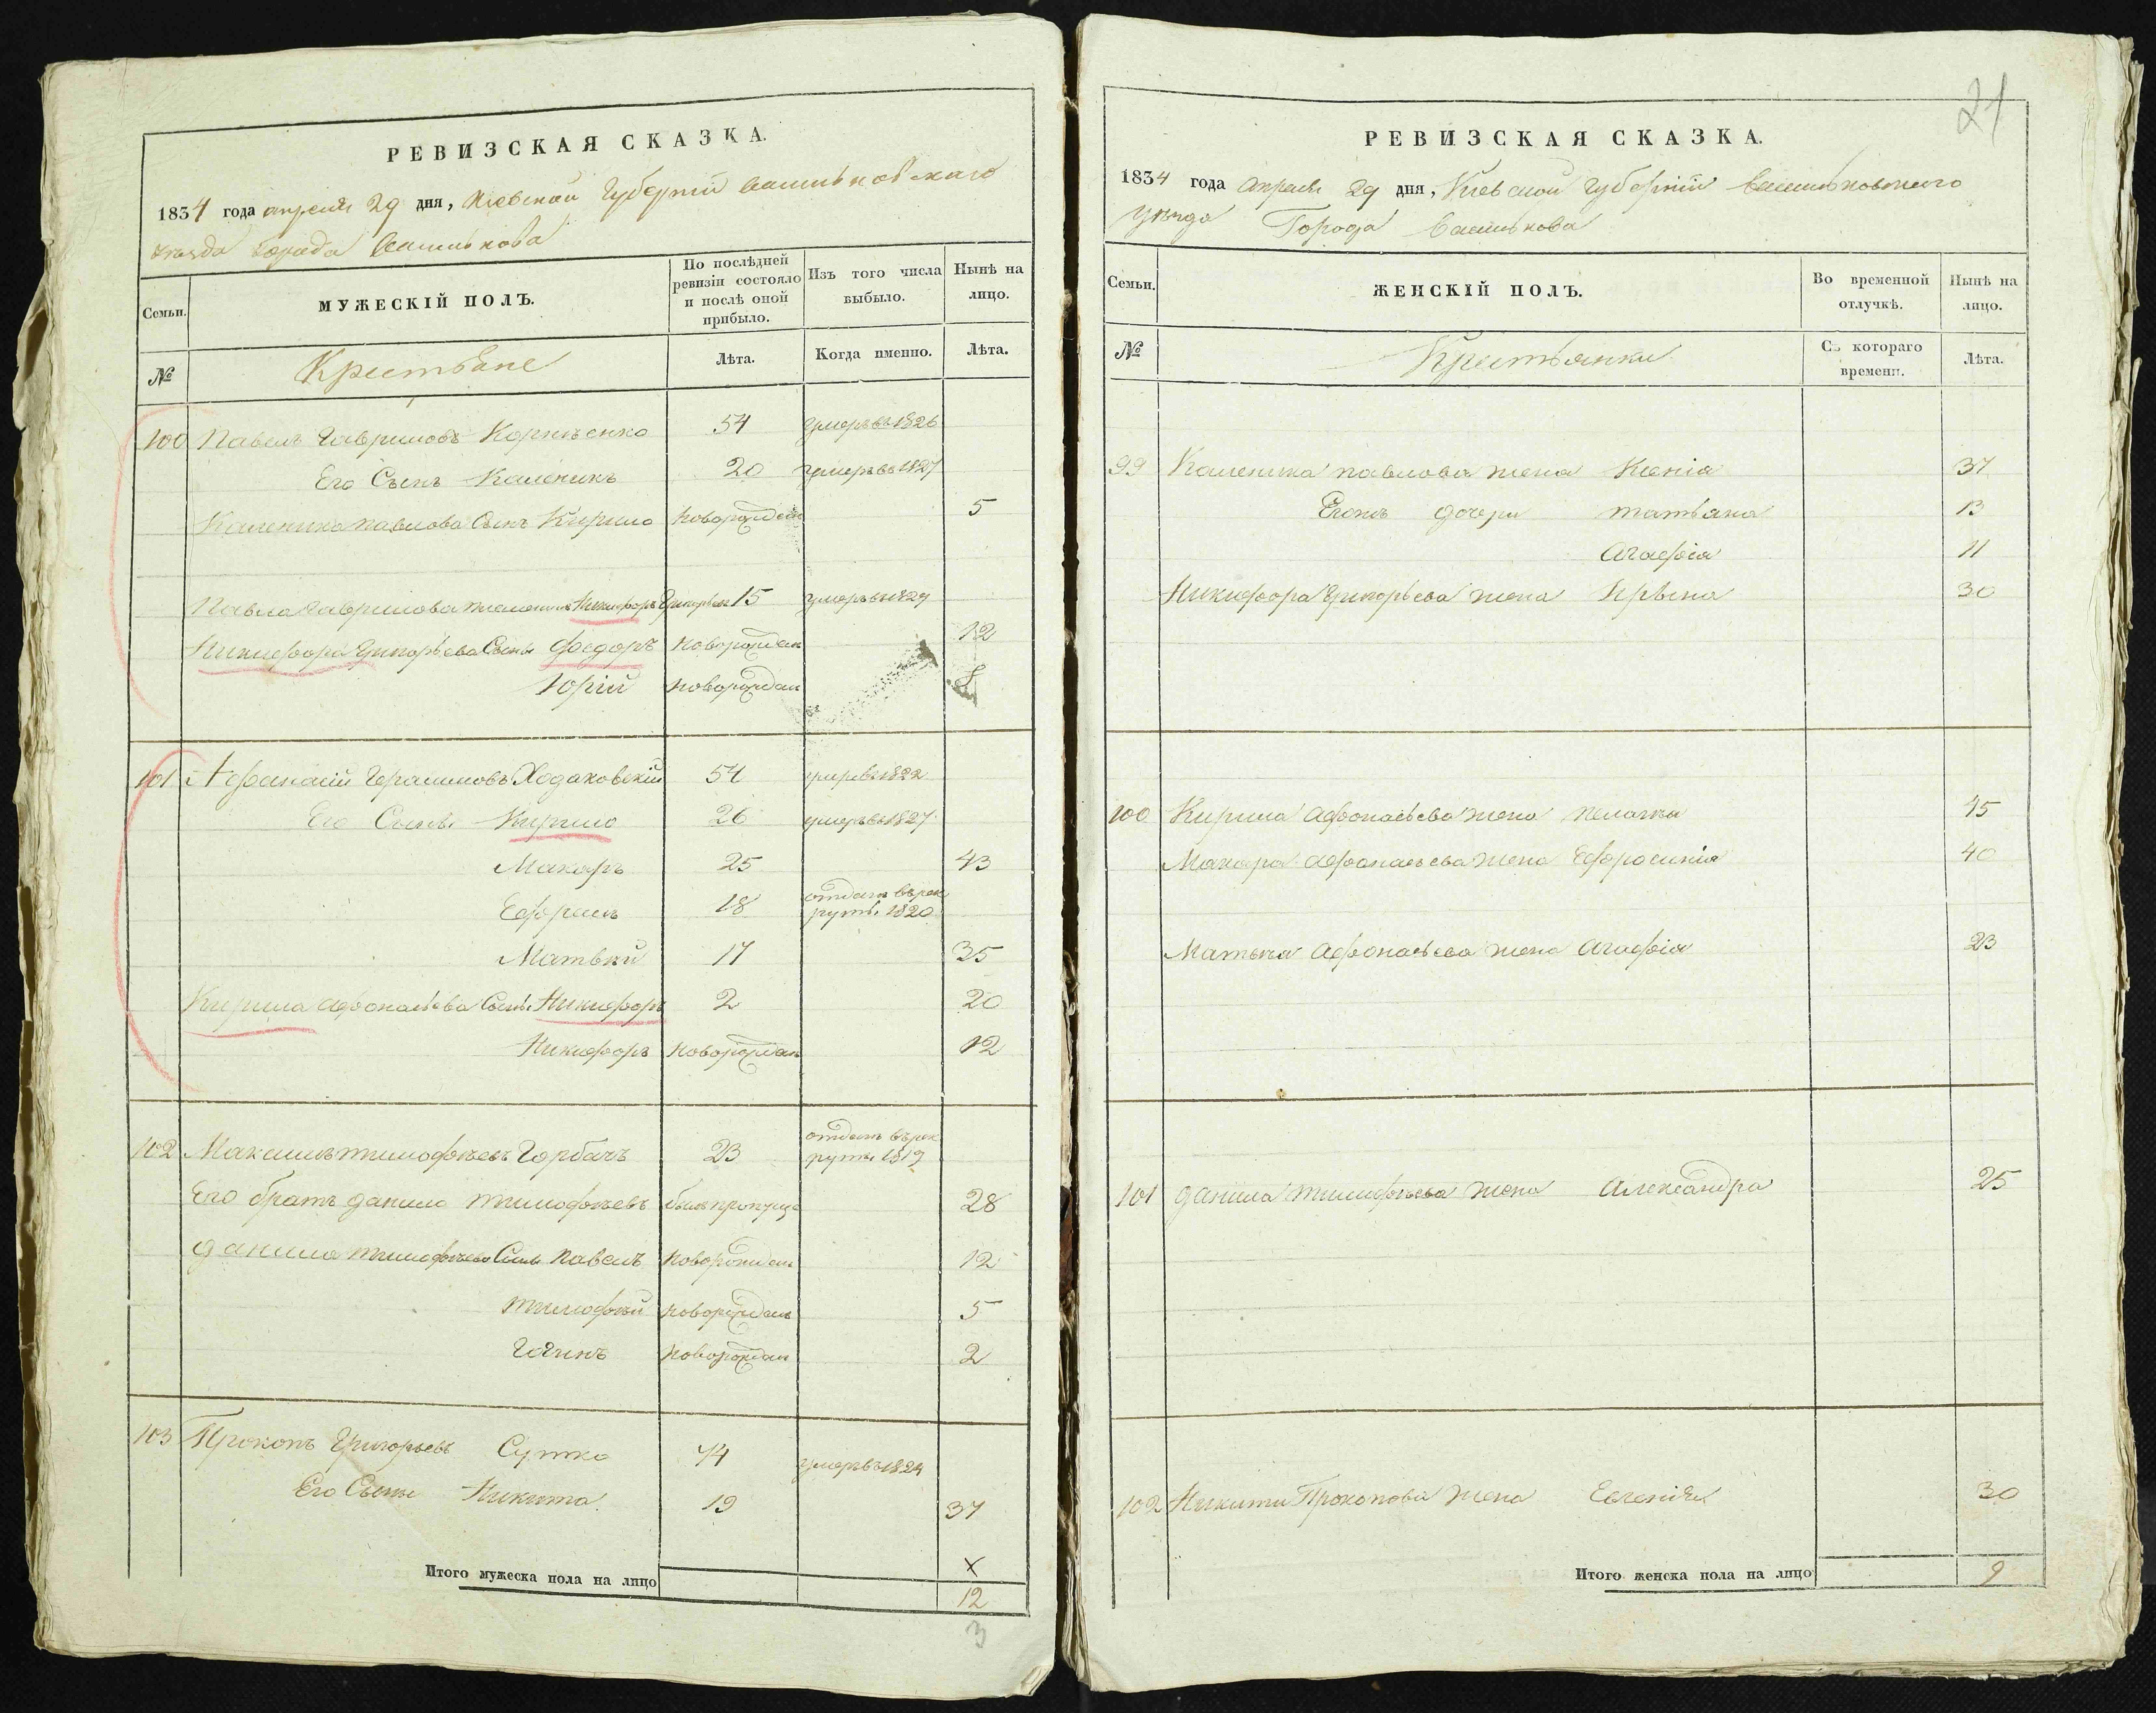 РЕВИЗСКАЯ СКАЗКА.
1834 года апреля 29 дня, Киевской Губерніи Васильковскаго
уезда города Василькова
Семьи. МУЖЕСКІЙ ПОЛЪ. По послѣдней ревизіи состояло и послѣ оной прибыло. Изъ того числа выбыло. Нынѣ на лицо.
№ Крестьяне Лѣта. Когда именно. Лѣта.
100 Павелъ Гавриловъ Корнѣенко 54 умеръ въ 1826
Его Сынъ Каленикъ 20 умеръ въ 1827
Каленика павлова Сынъ Кирило новорожден 5
Павла Гаврилова племенникъ Никифоръ Григорьев 15 умеръ въ 1829
Никифора Григорьева Сыны Федоръ новорожден 12
Юрій новорожден 8
101 Афанасій Герасимовъ Ходаковскій 54 умеръ въ 1822
Его Сыны Кирило 26 умеръ въ 1827
Макаръ 25 43
Ефремъ 18 отданъ въ рек
руты 1820
Матвѣй 17 35
Кирила Афонасьева Сыны Никифоръ 2 20
Никифоръ новорожден 12
102 Максимъ тимофѣевъ Горбачъ 23 отданъ въ рек
руты 1819
Его братъ данило тимофѣевъ былъ пропущ 28
данила тимофѣева Сыны павелъ новорожден 12
тимофѣй новорожден 5
новорожден 2
103 Прокопъ Григорьевъ Сутка 74 умеръ въ 1824
Его Сынъ Никита 19 37
Итого мужеска пола на лицо
12
3
21
РЕВИЗСКАЯ СКАЗКА.
1834 года апреля 29 дня, Киевской губерніи Васильковского
уѣзда Города Василькова
Семьи. ЖЕНСКІЙ ПОЛЪ. Во временной отлучкѣ. Нынѣ на лицо.
№ Крестьянки Съ котораго времени. Лѣта.
99 Каленика павлова жена Ксенія 37
дочери татьяна 13
Агафія 11
Никифора Григорьева жена Ирына 30
100 Кирила Афонасьева жена пелагѣя 45
Макара Афонасьева жена Ефросинія 40
Матвѣя Афонасьева жена Агафія 23
101 данила тимофѣева жена Александра 25
102 Никиты Прокопова жена Евгенія 30
Итого женска пола на лицо 9